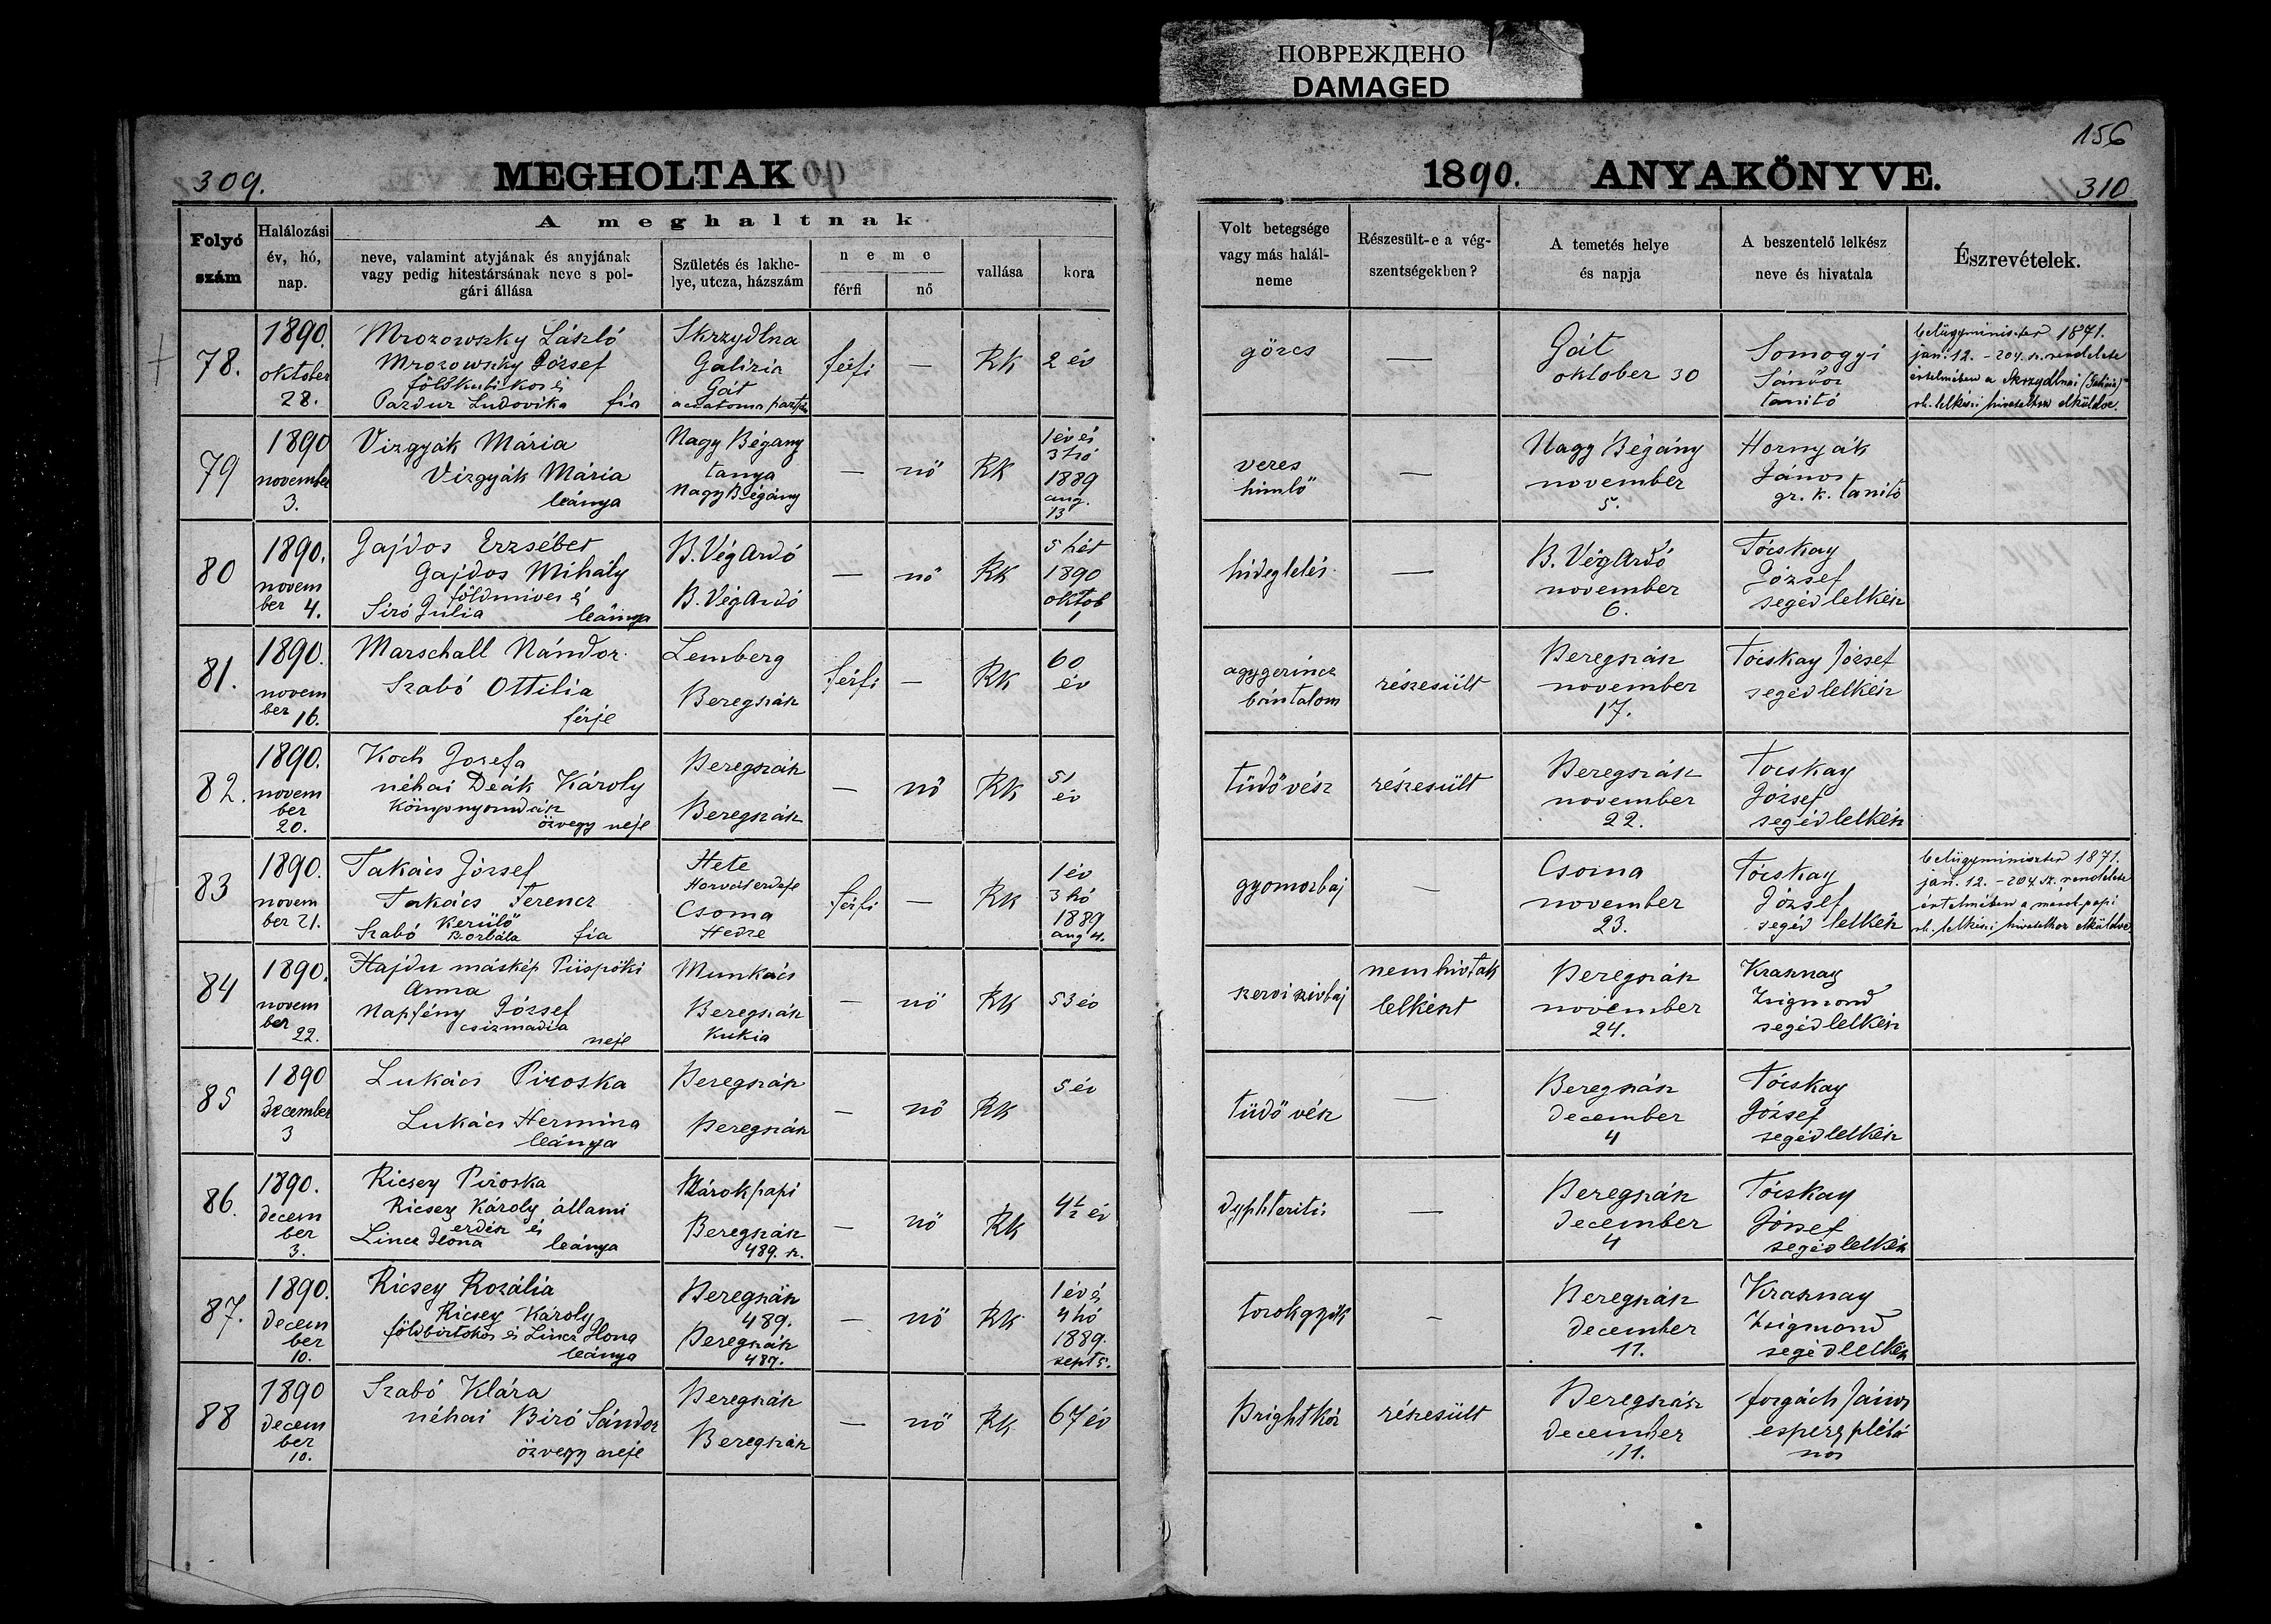 ПОВРЕЖДЕНО
DAMAGED
156
309.
MEGHOLTAK
1890. ANYAKÖNYVE.
310
Folyó szám
Halálozási év, hó, nap.
A meghaltnak
neve, valamint atyjának és anyjának vagy pedig hitestársának neve s polgári állása
Születés és lakhelye, utcza, házszám
neme
férfi
nő
vallása
kora
Volt betegsége vagy más halálneme
Részesült-e a végszentségekben?
A temetés helye és napja
A beszentelő lelkész neve és hivatala
Észrevételek.
78.
1890.
oktober
28.
Mrozowszky László
Mrozowszky József
földkubikos és
Pazdur Ludovika fia
Skrzydlna
Galizia
Gát
férfi
—
RK
2 év
görcs
—
Gát
oktober 30
Somogyi
Sándor
tanító
belügyminister 1871.
jan. 12. - 204 sz. rendelete
értelmében a Skrzydlnai
rk. lelkészi hivatalhoz elküldve.
79
1890
november
3.
Vizgyák Mária
Vizgyák Mária
leánya
Nagy Bégany
tanya
Nagy Bégány
—
nő
RK
1 év és
3 hó
1889
aug.
13
veres
himlő
—
Nagy Bégány
november
5.
Hornyák
János
gr. k. tanító
80
1890.
novem
ber 4.
Gajdos Erzsébet
Gajdos Mihály
földmives és
Siró Julia leánya
B. VégArdó
B. VégArdó
—
nő
RK
5 hét
1890
oktob
1
hideglelés
—
B. VégArdó
november
6.
Tócskay
József
segéd lelkész
81.
1890.
novem
ber 16.
Marschall Nándor
Szabó Ottilia
férje
Lemberg
Beregszász
férfi
—
RK
60
év
agygerincz
bántalom
részesült
Beregszász
november
17.
Tócskay József
segéd lelkész
82.
1890.
novem
ber
20.
Koch Josefa
néhai Deák Károly
Könyvnyomdász
özvegy neje
Beregszász
Beregszász
—
nő
RK
51
év
tüdővész
részesült
Beregszász
november
22.
Tocskay
József
segédlelkész
83
1890.
novem
ber 21.
Takács József
Takács Ferencz
Kerülő
Szabó Borbála fia
Hete
Csoma
Hedze
férfi
—
RK
1 év
3 hó
1889
aug 4.
gyomorbaj
—
Csoma
november
23.
Tócskay
József
segéd lelkész
belügyminiszter 1871.
jan. 12. - 204 sz. rendelete
értelmében a márokpapi
rk. lelkészi hivatalhoz elküldve.
84
1890.
novem
ber
22.
Hajdu máskép Püspöki
Anna
Napfény József
csizmadia
neje
Munkács
Beregszász
Kukia
—
nő
RK
53 év
szervi szivbaj
nem hivtak
lelkészt
Beregszász
november
24.
Krasznay
Zsigmond
segédlelkész
85
1890
december
3
Lukács Piroska
Lukács Hermina
leánya
Beregszász
Beregszász
—
nő
RK
5 év
tüdő vész
—
Beregszász
december
4
Tócskay
József
segédlelkész
86.
1890.
decem
ber
3.
Ricsey Piroska
Ricsey Károly állami
erdész és
Lincz Ilona leánya
Márokpapi
Beregszász
489. sz.
—
nő
RK
4½ év
dyphteritis
—
Beregszász
december
4
Tócskay
József
segédlelkész
87.
1890.
decem
ber
10.
Ricsey Rozália
Ricsey Károly
földbirtokos és Lincz Ilona
leánya
Beregszász
489.
Beregszász
489.
—
nő
RK
1 év és
4 hó
1889.
sept 5.
torokgyík
—
Beregszász
december
11.
Krasznay
Zsigmond
segédlelkész
88
1890
decem
ber
10.
Szabó Klára
néhai Biró Sándor
özvegy neje
Beregszász
Beregszász
—
nő
RK
67 év
Brightkór
részesült
Beregszász
december
11.
forgách János
esperes plébá
nos